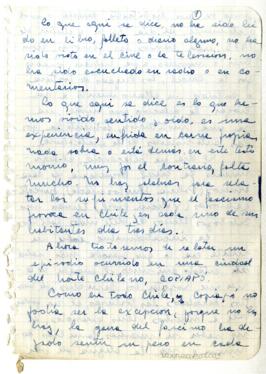 1
Lo que aquí se dice, no ha sido leí
do en libro, folleto o diario alguno, no ha
sido visto en el cine o la televisión, no
ha sido escuchado en radio o en co
mentarios.
Lo que aquí se dice es lo que he
mos vivido sentido y oído, es una
experiencia, sufrida en carne propia
nada sobra o está demás en este testi
monio, muy por el contrario, falta
mucho. No hay palabras para rela
tar los sufrimientos que el fascismo
provoca en Chile, en cada uno de sus
habitantes día tras día.
Ahora trataremos de relatar un
episodio ocurrido en una ciudad
del norte chileno, COPIAPÓ
Como en todo Chile, Copiapó no
podía ser la excepción, porque no
hay, la garra del fascismo ha de
jado sentir su peso en cada